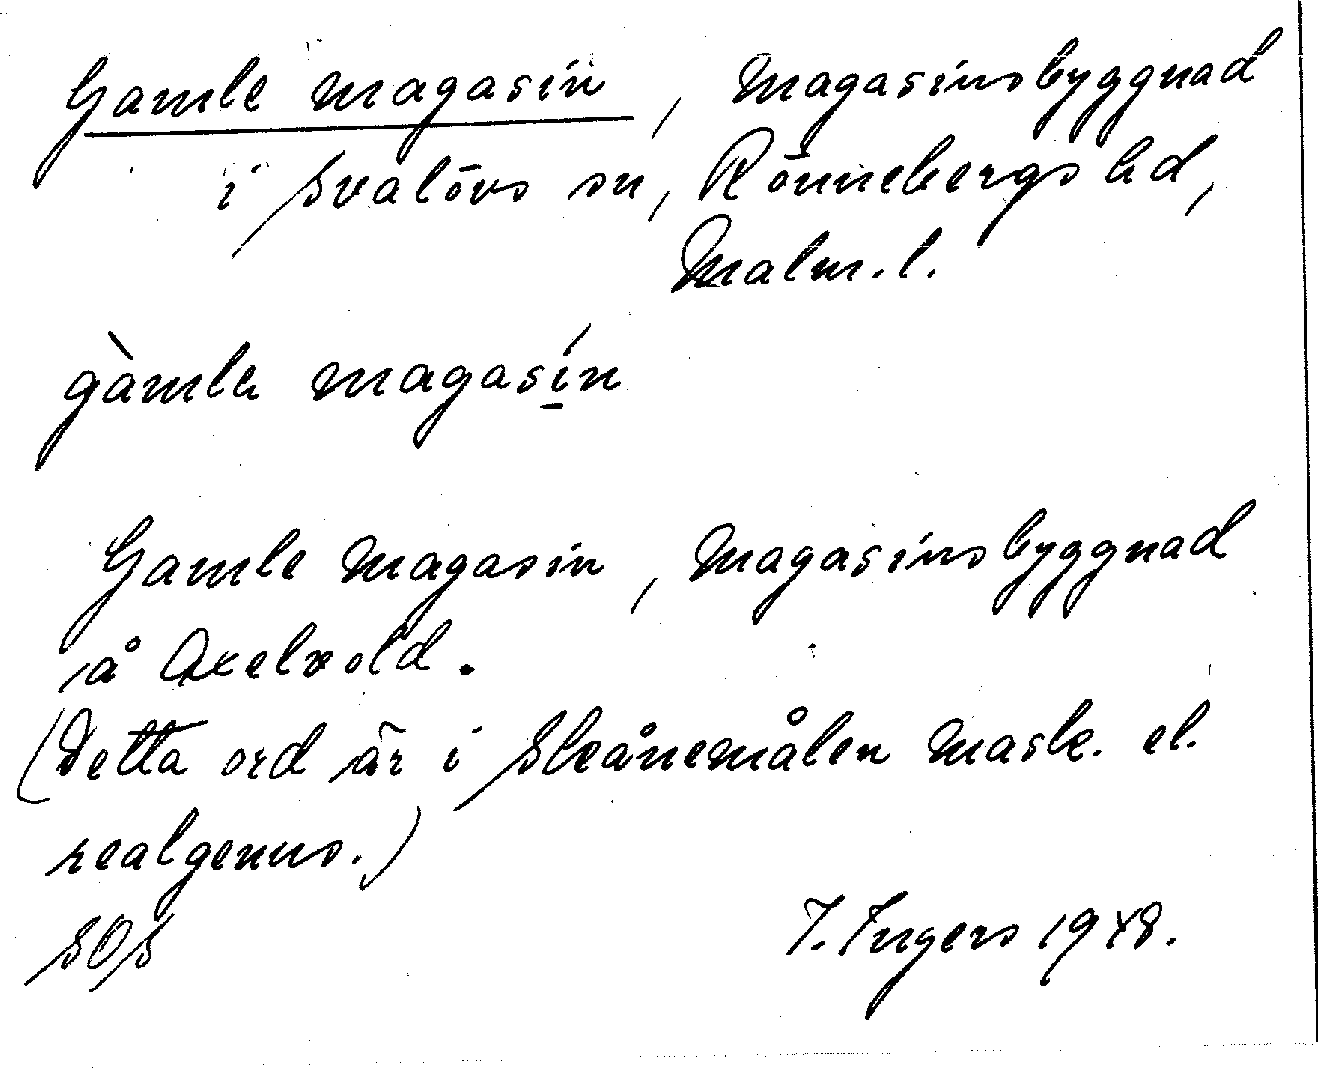 Gamle magasin, magasinsbyggnad
i Svalövs sn, Rönnebergs hd,
Malm.l.
gàmlə magasí̱n
Gamle magasin, magasinsbyggnad
å Axelvold.
(Detta ord är i Skånemålen mask. el.
realgenus.)
SOS
I. Ingers 1948.